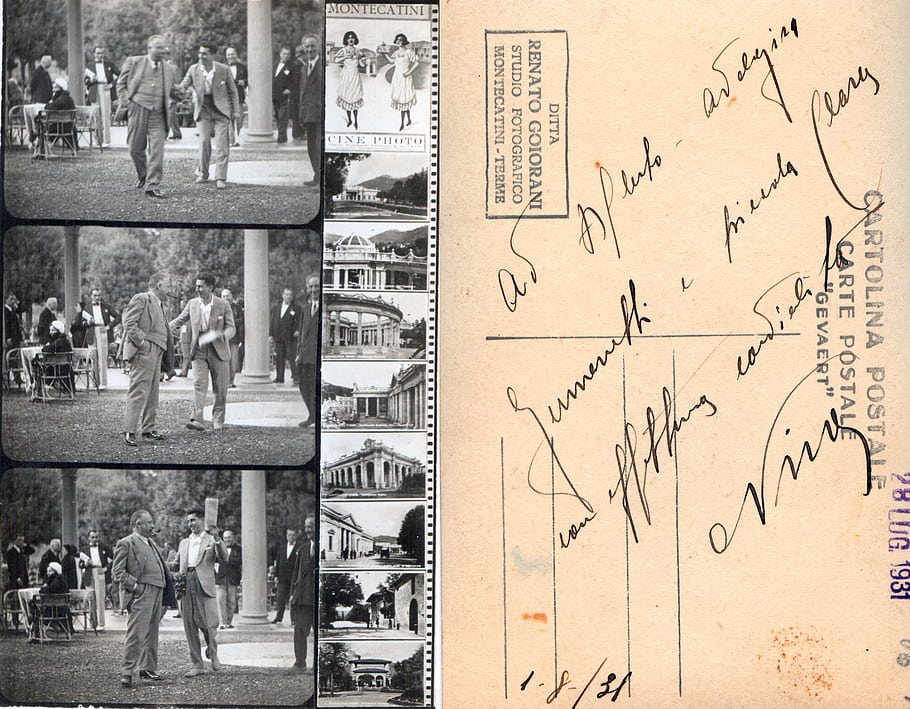 MONTECATINI
CINE PHOTO
DITTA
RENATO GOIORANI
STUDIO FOTOGRAFICO
MONTECATINI-TERME
CARTOLINA POSTALE
CARTE POSTALE
"GEVAERT"
28 LUG. 1931
Ad Alberto - Adalgisa
e piccola Clara
con
Nino
1-8-/31